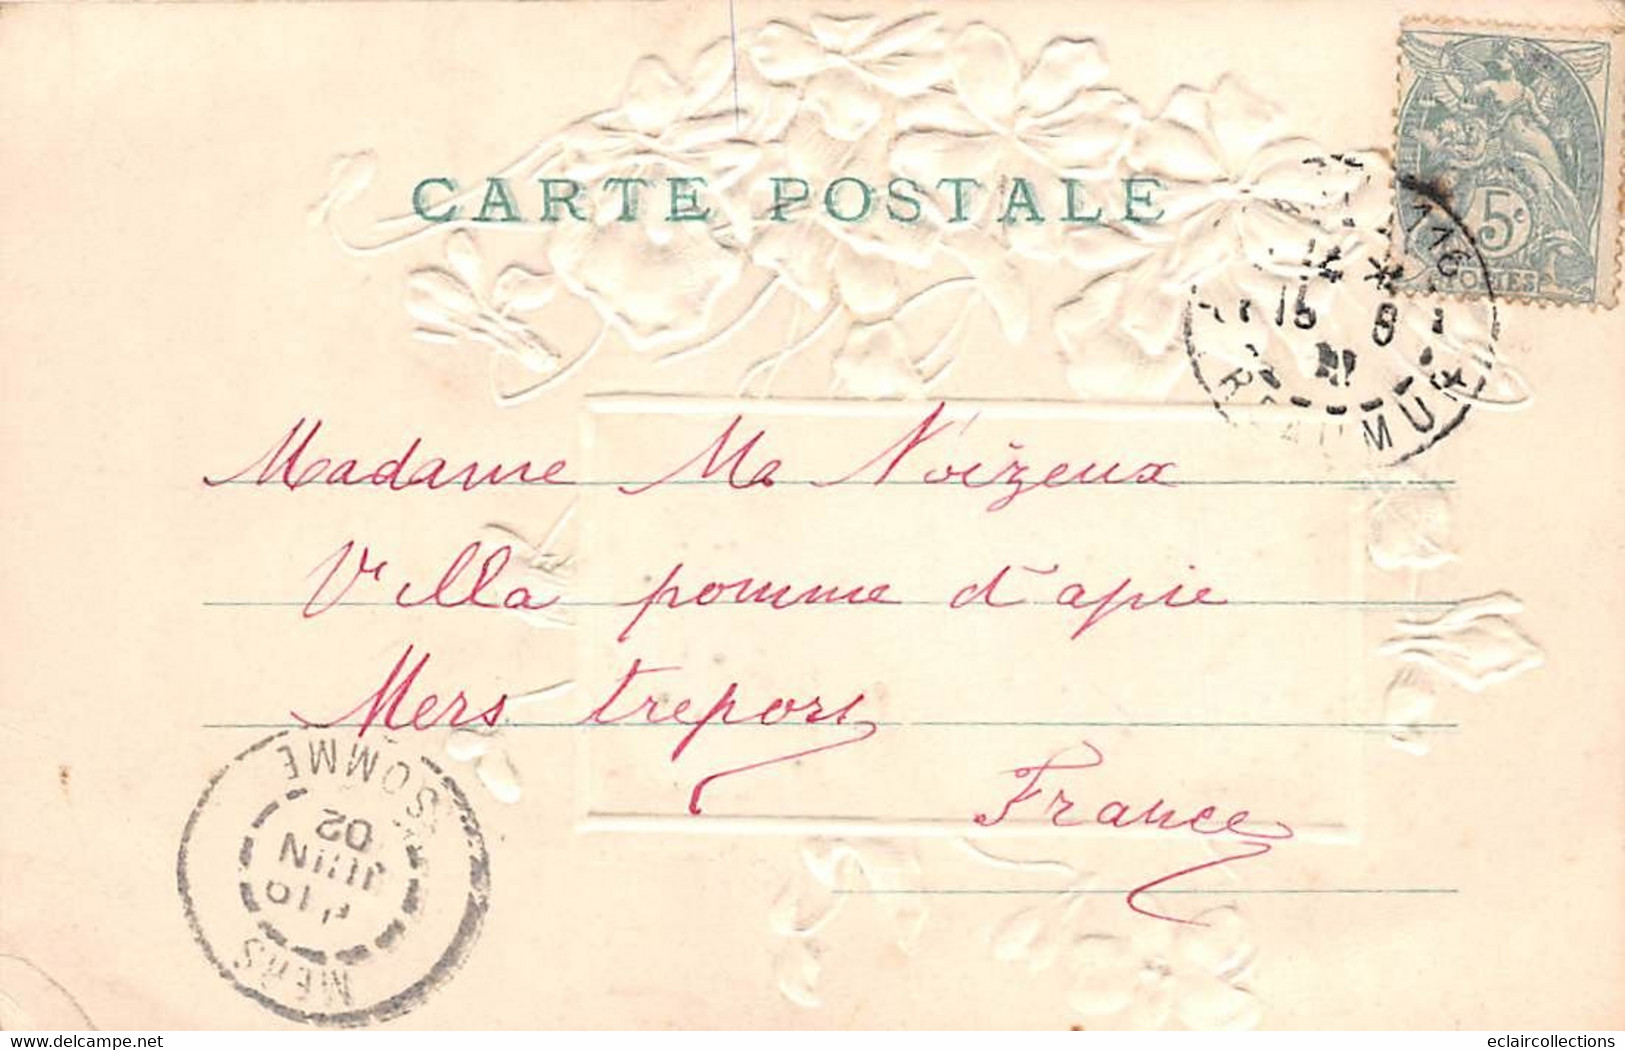 CARTE POSTALE
5c
POSTES
116
14 *
15 6
REAUMUR
Madame Me Noizeux
Villa pomme d'apie
Mers treport
France
SOMME
02
JUIN
16
MERS
Delcampe.net
eclaircollections